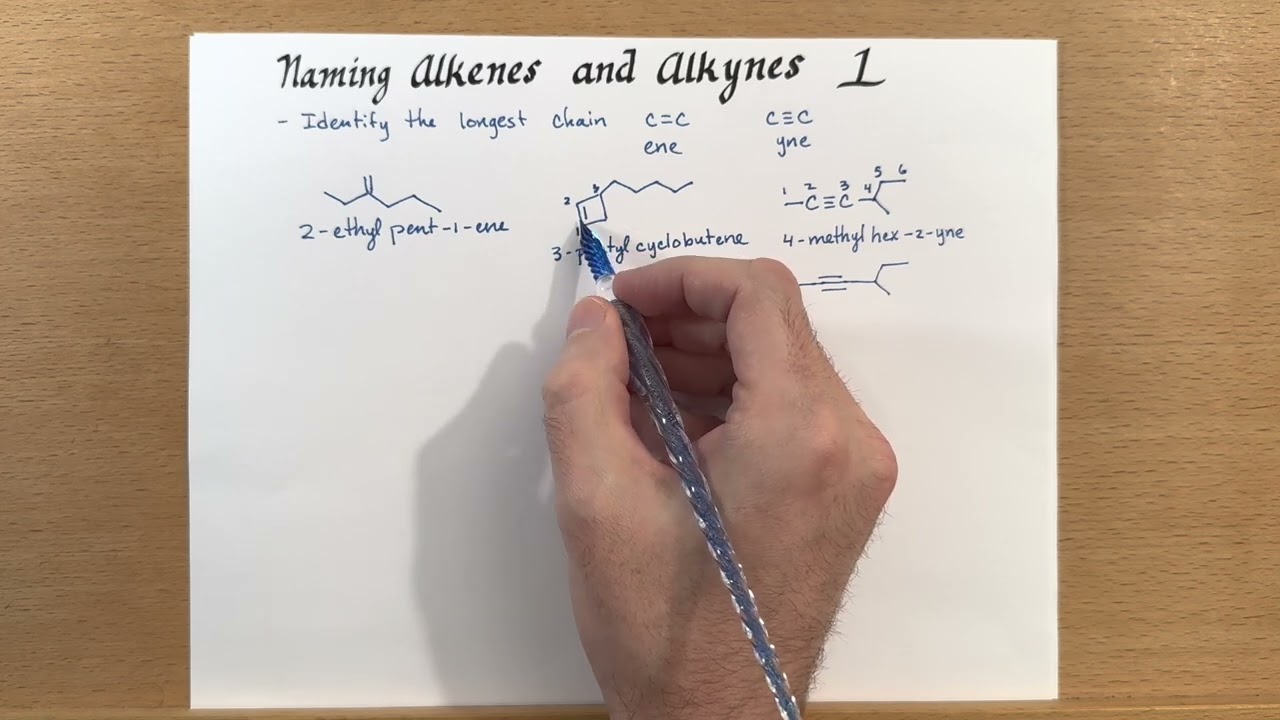 Naming Alkenes and Alkynes 1
- Identify the longest chain C=C C≡C
ene yne
2-ethyl pent-1-ene
2 3
1
3- tyl cyclobutene
1 2 3 4 5 6
C≡C
4-methyl hex-2-yne